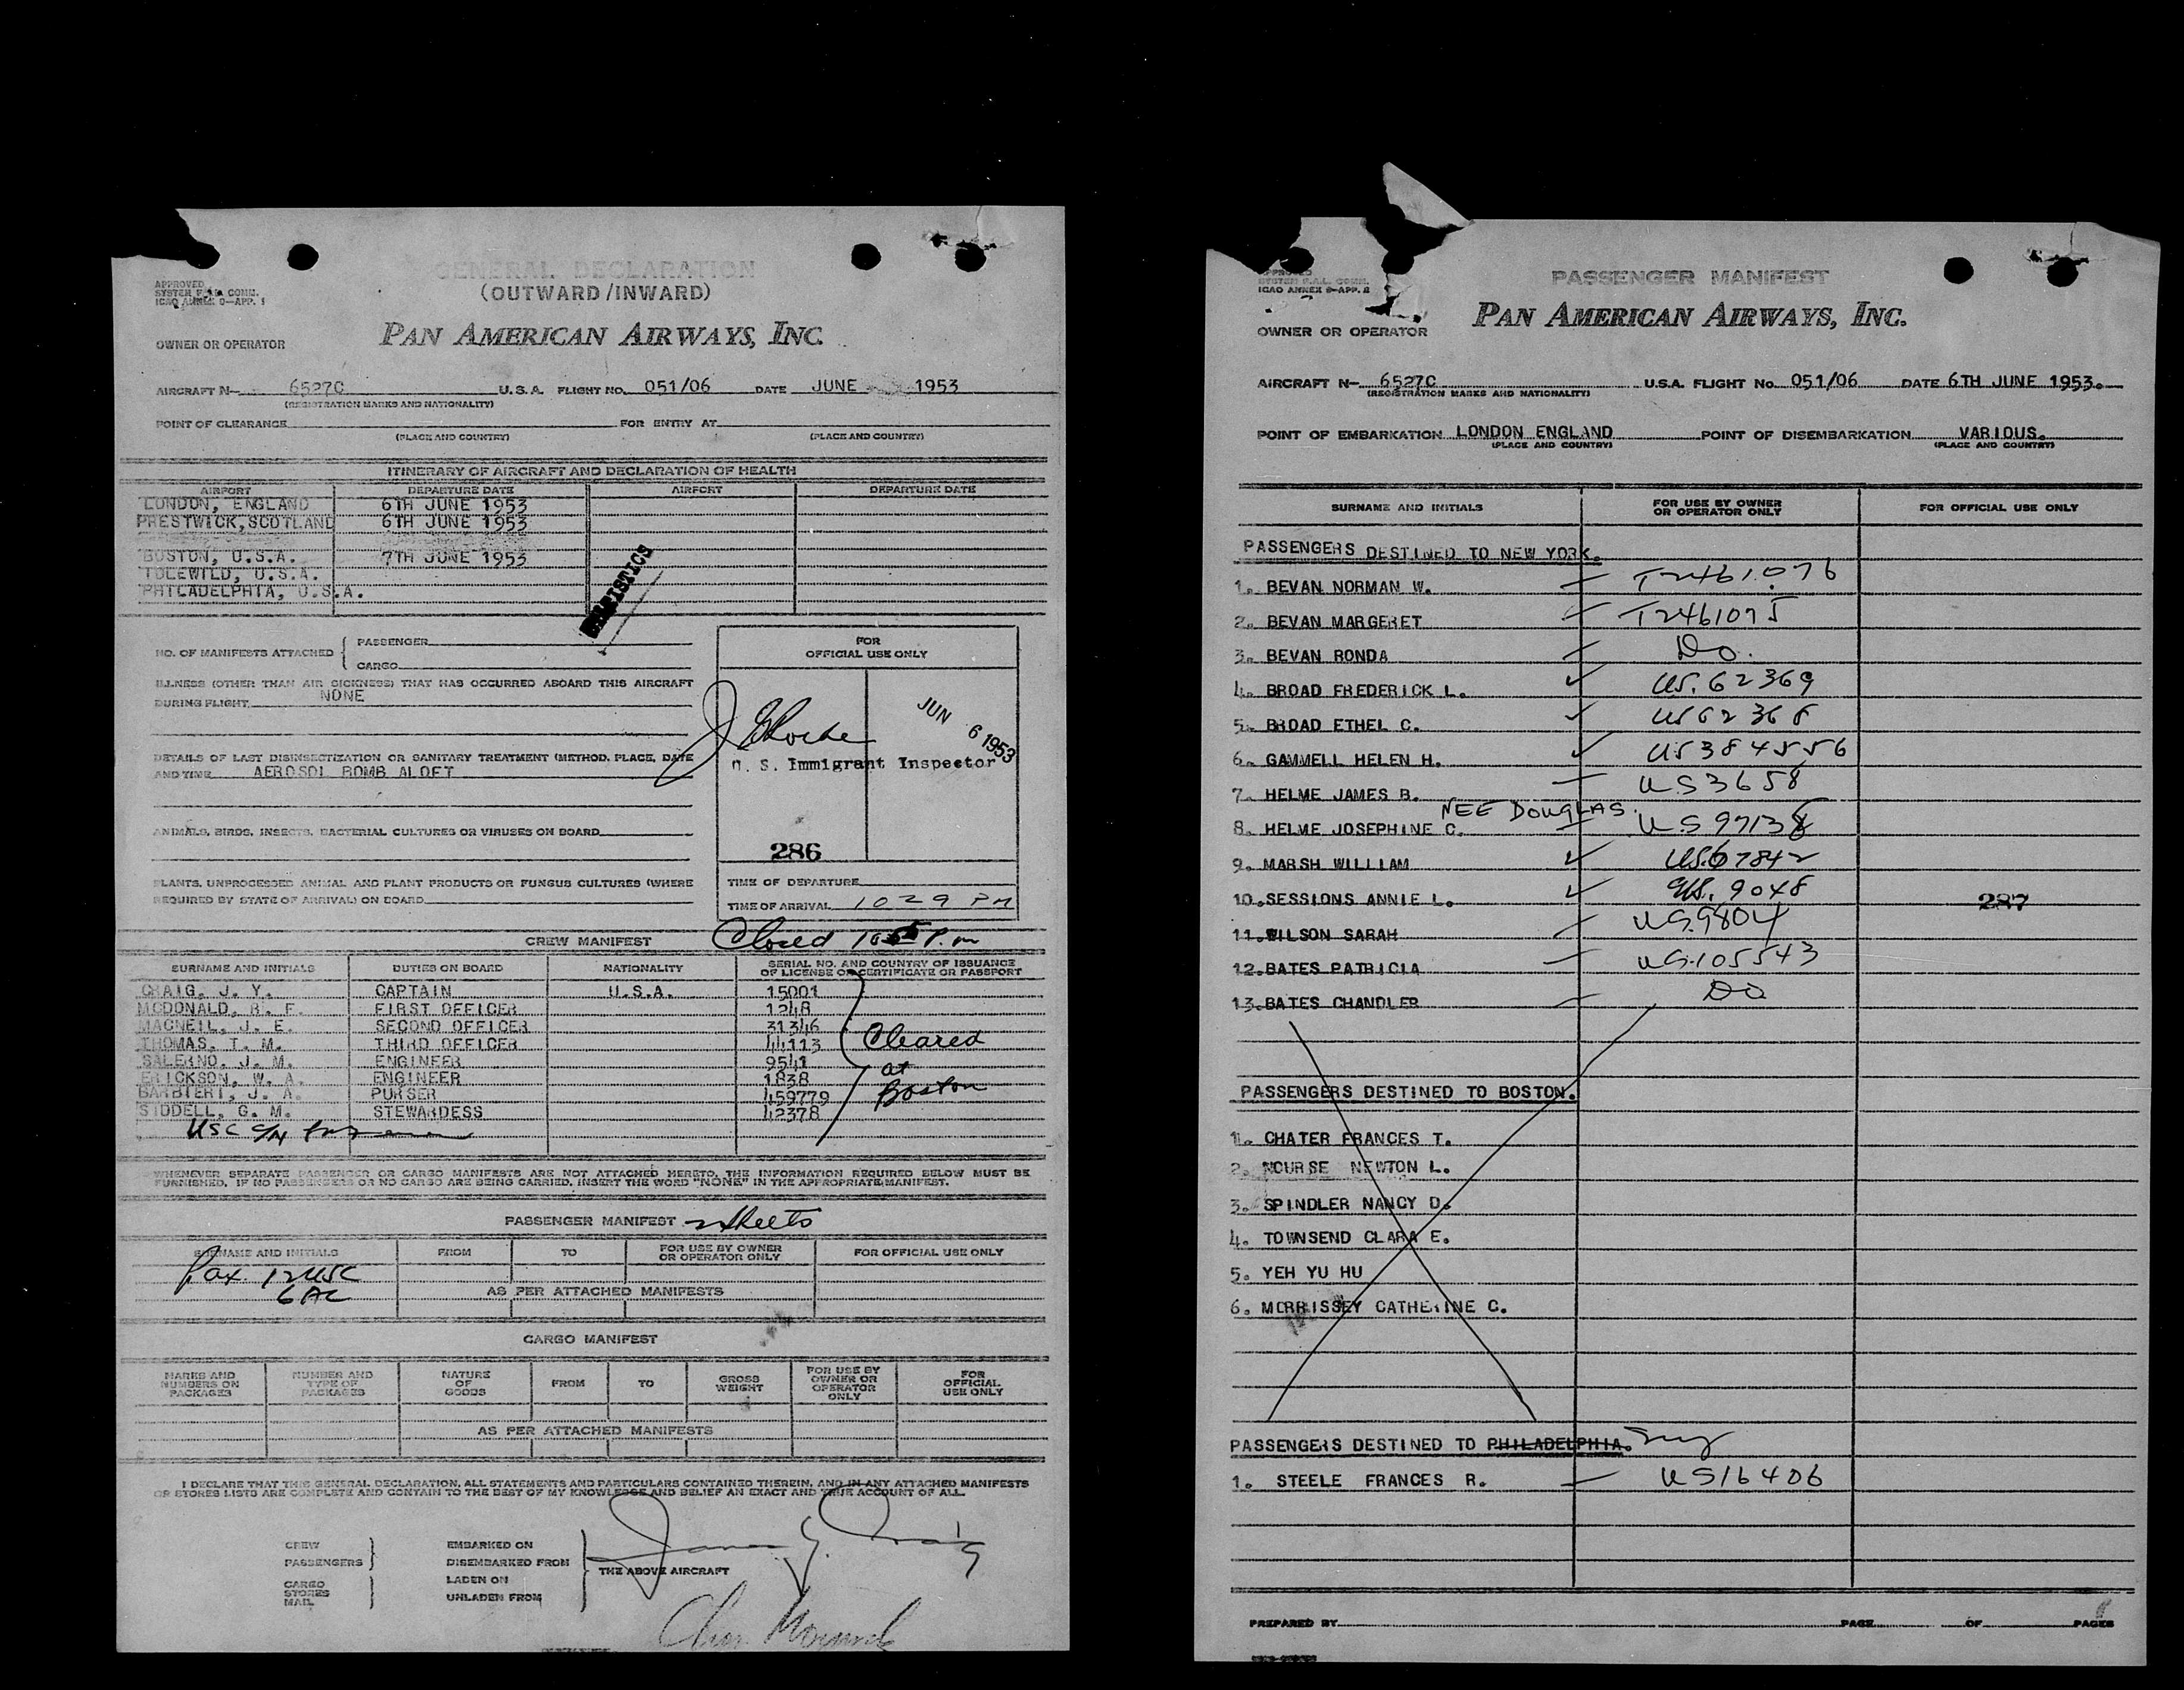 GENERAL DECLARATION
(OUTWARD/INWARD)
APPROVED
SYSTEM F.A.L. COMM.
ICAO ANNEX 9—APP. 1
OWNER OR OPERATOR
PAN AMERICAN AIRWAYS, INC.
AIRCRAFT N— 6527C U.S.A. FLIGHT NO. 051/06 DATE JUNE 1953
(REGISTRATION MARKS AND NATIONALITY)
POINT OF CLEARANCE FOR ENTRY AT
(PLACE AND COUNTRY) (PLACE AND COUNTRY)
ITINERARY OF AIRCRAFT AND DECLARATION OF HEALTH
AIRPORT DEPARTURE DATE AIRPORT DEPARTURE DATE
LONDON, ENGLAND 6TH JUNE 1953
PRESTWICK, SCOTLAND 6TH JUNE 1953
BOSTON, U.S.A. 7TH JUNE 1953
IDLEWILD, U.S.A.
PHILADELPHIA, U.S.A.
NO. OF MANIFESTS ATTACHED
PASSENGER
CARGO
ILLNESS (OTHER THAN AIR SICKNESS) THAT HAS OCCURRED ABOARD THIS AIRCRAFT
DURING FLIGHT NONE
DETAILS OF LAST DISINSECTIZATION OR SANITARY TREATMENT (METHOD, PLACE, DATE
AND TIME AEROSOL BOMB ALOFT
ANIMALS, BIRDS, INSECTS, BACTERIAL CULTURES OR VIRUSES ON BOARD
PLANTS, UNPROCESSED ANIMAL AND PLANT PRODUCTS OR FUNGUS CULTURES (WHERE
REQUIRED BY STATE OF ARRIVAL) ON BOARD
FOR
OFFICIAL USE ONLY
JUN 6 1953
U. S. Immigrant Inspector
286
TIME OF DEPARTURE
TIME OF ARRIVAL 1029 PM
Closed P.m
CREW MANIFEST
SURNAME AND INITIALS DUTIES ON BOARD NATIONALITY SERIAL NO. AND COUNTRY OF ISSUANCE
OF LICENSE OR CERTIFICATE OR PASSPORT
CRAIG, J. Y. CAPTAIN U.S.A. 15001
MCDONALD, R. F. FIRST OFFICER 1248
MACNEIL, J. E. SECOND OFFICER 31346
THOMAS, T. M. THIRD OFFICER 44113
SALERNO, J. M. ENGINEER 9541
ERICKSON, W. A. ENGINEER 1838
BARBIERI, J. A. PURSER 459779
SIDDELL, G. M. STEWARDESS 42378
Cleared
at
Boston
USC
WHENEVER SEPARATE PASSENGER OR CARGO MANIFESTS ARE NOT ATTACHED HERETO, THE INFORMATION REQUIRED BELOW MUST BE
FURNISHED. IF NO PASSENGERS OR NO CARGO ARE BEING CARRIED, INSERT THE WORD "NONE" IN THE APPROPRIATE MANIFEST.
PASSENGER MANIFEST 2 sheets
SURNAME AND INITIALS FROM TO FOR USE BY OWNER
OR OPERATOR ONLY FOR OFFICIAL USE ONLY
Pax 12 USC
6 AL
AS PER ATTACHED MANIFESTS
CARGO MANIFEST
MARKS AND
NUMBERS ON
PACKAGES
NUMBER AND
TYPE OF
PACKAGES
NATURE
OF
GOODS
FROM
TO
GROSS
WEIGHT
FOR USE BY
OWNER OR
OPERATOR
ONLY
FOR
OFFICIAL
USE ONLY
AS PER ATTACHED MANIFESTS
I DECLARE THAT THIS GENERAL DECLARATION, ALL STATEMENTS AND PARTICULARS CONTAINED THEREIN, AND IN ANY ATTACHED MANIFESTS
OR STORES LISTS ARE COMPLETE AND CONTAIN TO THE BEST OF MY KNOWLEDGE AND BELIEF AN EXACT AND TRUE ACCOUNT OF ALL
CREW
PASSENGERS
CARGO
STORES
MAIL
EMBARKED ON
DISEMBARKED FROM
LADEN ON
UNLADEN FROM
THE ABOVE AIRCRAFT
James Y. Craig
APPROVED
SYSTEM F.A.L. COMM.
ICAO ANNEX 9—APP. 2
PASSENGER MANIFEST
OWNER OR OPERATOR
PAN AMERICAN AIRWAYS, INC.
AIRCRAFT N— 6527C U.S.A. FLIGHT No. 051/06 DATE 6TH JUNE 1953.
(REGISTRATION MARKS AND NATIONALITY)
POINT OF EMBARKATION LONDON ENGLAND POINT OF DISEMBARKATION VARIOUS.
(PLACE AND COUNTRY) (PLACE AND COUNTRY)
SURNAME AND INITIALS FOR USE BY OWNER
OR OPERATOR ONLY FOR OFFICIAL USE ONLY
PASSENGERS DESTINED TO NEW YORK.
1. BEVAN NORMAN W. T2461076
2. BEVAN MARGERET T2461075
3. BEVAN RONDA Do.
4. BROAD FREDERICK L. US. 62369
5. BROAD ETHEL C. US 62368
6. GAMMELL HELEN H. US 384556
7. HELME JAMES B. US 3658
NEE DOUGLAS.
8. HELME JOSEPHINE C. US 97138
9. MARSH WILLIAM US. 67842
10. SESSIONS ANNIE L. US. 9048 287
11. WILSON SARAH US. 9804
12. BATES PATRICIA US. 105543
13. BATES CHANDLER DO
PASSENGERS DESTINED TO BOSTON.
1. CHATER FRANCES T.
2. NOURSE NEWTON L.
3. SPINDLER NANCY D.
4. TOWNSEND CLARA E.
5. YEH YU HU
6. MORRISSEY CATHERINE C.
PASSENGERS DESTINED TO PHILADELPHIA.
1. STEELE FRANCES R. US 16406
PREPARED BY PAGE OF PAGES